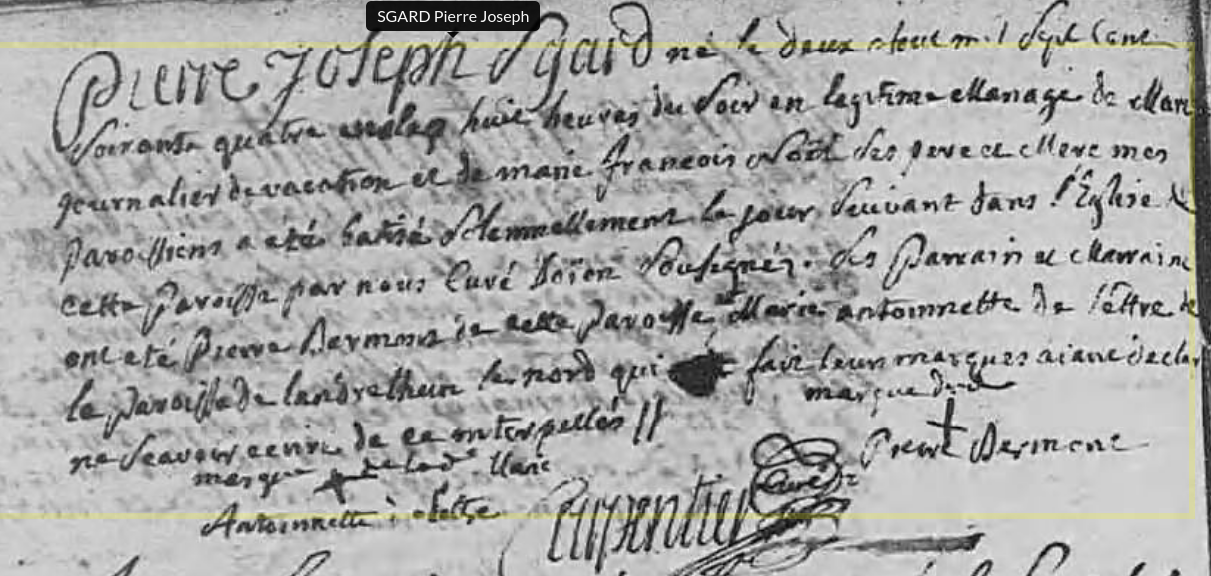 SGARD Pierre Joseph
Pierre Joseph Sgard né le deux aout mil Sept Cent
Soixante quatre huit heures du Soir en legitime Mariage de Marc
journalier de vacation et de marie francois Noël Ses pere et Mere mes
paroissiens a eté batisé Solemnellement le jour Suivant dans l'Eglise de
cette paroisse par nous Curé Doïen Soussigné. Ses Parrain et Marraine
ont eté Pierre Bermont de cette paroisse, et Marie antoinnette De lettre de
la paroisse de landrethun le nord qui fait leurs marques aiant declar
marque de
ne Scavoir ecrire de ce interpellés //
marque de lad. Marie
Pierre Bermont
Antoinnette
Carpentier Curé